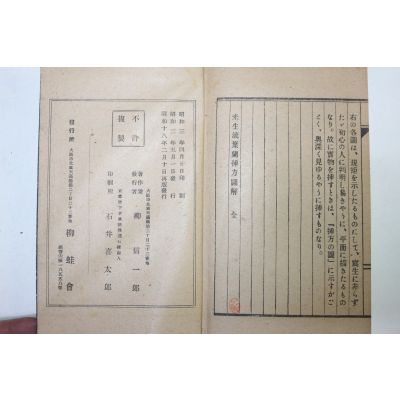 右の各圖は、規矩を示したるものにして、寫生に非らず
たゞ初心の人に判明し易きやうに、平面に描きたるもの
なり。故に實物を挿すときは、「挿方の圖」に示すがご
とく、奥深く見ゆるやうに挿すものなり。
未生流葉蘭挿方圖解 全
昭和三年四月十日印刷
昭和三年五月一日發行
昭和十八年二月十日再版發行
不許
複製
著作兼
發行者
柳信一郎
印刷所 石井喜太郎
發行所
柳蛙會